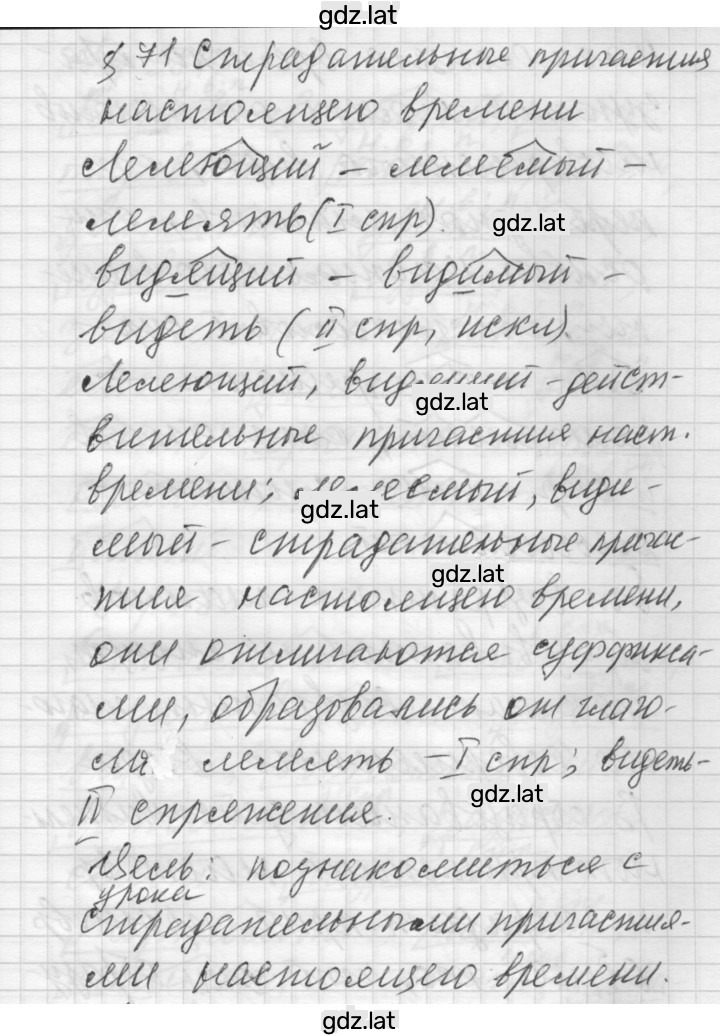 gdz.lat
§ 71 Страдательные причастия
настоящего времени
Лелеющий – лелеемый –
лелеять (I спр).
gdz.lat
видящий – видимый –
видеть (II спр, искл).
Лелеющий, видящий – дейст-
gdz.lat
вительные причастия наст.
времени; лелеемый, види-
gdz.lat
мый – страдательные причас-
gdz.lat
тия настоящего времени,
они отличаются суффикса-
ми, образовались от глаго-
ла лелеять – I спр; видеть-
gdz.lat
II спряжения.
Цель: познакомиться с
урока
страдательными причастия-
ми настоящего времени.
gdz.lat